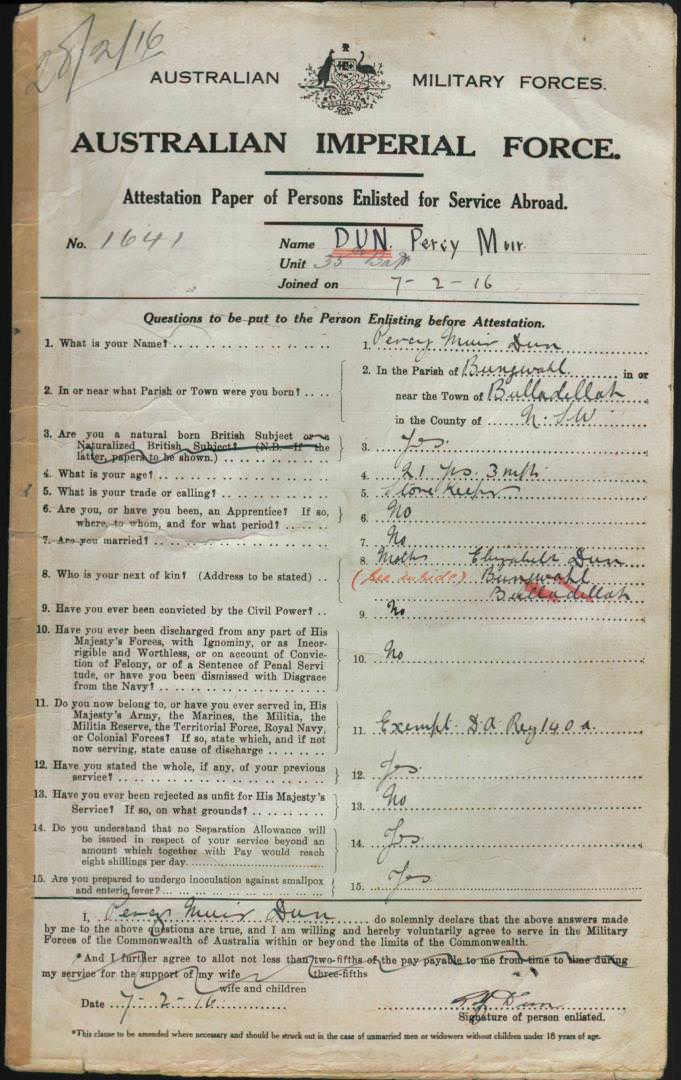 28/2/16
AUSTRALIAN MILITARY FORCES.
AUSTRALIAN IMPERIAL FORCE.
Attestation Paper of Persons Enlisted for Service Abroad.
No. 1641 Name DUN. Percy Muir.
Unit 35th Batt
Joined on 7-2-16
Questions to be put to the Person Enlisting before Attestation.
1. What is your Name? 1. Percy Muir Dun
2. In or near what Parish or Town were you born? 2. In the Parish of Bungwahl in or
near the Town of Bulladillah
in the County of N.S.W
3. Are you a natural born British Subject or a
Naturalized British Subject? (N.B. If the
latter, papers to be shown.) 3. Yes.
4. What is your age? 4. 21 yrs. 3 mths
5. What is your trade or calling? 5. Store Keeper
6. Are you, or have you been, an Apprentice? If so,
where, to whom, and for what period? 6. No
7. Are you married? 7. No
8. Who is your next of kin? (Address to be stated) 8. Mother Elizabeth Dun
(see inside) Bungwahl
Bulladillah
9. Have you ever been convicted by the Civil Power? 9. No
10. Have you ever been discharged from any part of His
Majesty's Forces, with Ignominy, or as Incor-
rigible and Worthless, or on account of Convic-
tion of Felony, or of a Sentence of Penal Servi
tude, or have you been dismissed with Disgrace
from the Navy? 10. No
11. Do you now belong to, or have you ever served in, His
Majesty's Army, the Marines, the Militia, the
Militia Reserve, the Territorial Force, Royal Navy,
or Colonial Forces? If so, state which, and if not
now serving, state cause of discharge 11. Exempt. D.A. Reg 140 a.
12. Have you stated the whole, if any, of your previous
service? 12. Yes.
13. Have you ever been rejected as unfit for His Majesty's
Service? If so, on what grounds? 13. No
14. Do you understand that no Separation Allowance will
be issued in respect of your service beyond an
amount which together with Pay would reach
eight shillings per day. 14. Yes
15. Are you prepared to undergo inoculation against smallpox
and enteric fever? 15. Yes
I, Percy Muir Dun do solemnly declare that the above answers made
by me to the above questions are true, and I am willing and hereby voluntarily agree to serve in the Military
Forces of the Commonwealth of Australia within or beyond the limits of the Commonwealth.
*And I further agree to allot not less than two-fifths of the pay payable to me from time to time during
three-fifths
my service for the support of my wife
wife and children
Date 7-2-16 P M Dun
Signature of person enlisted.
*This clause to be amended where necessary and should be struck out in the case of unmarried men or widowers without children under 18 years of age.